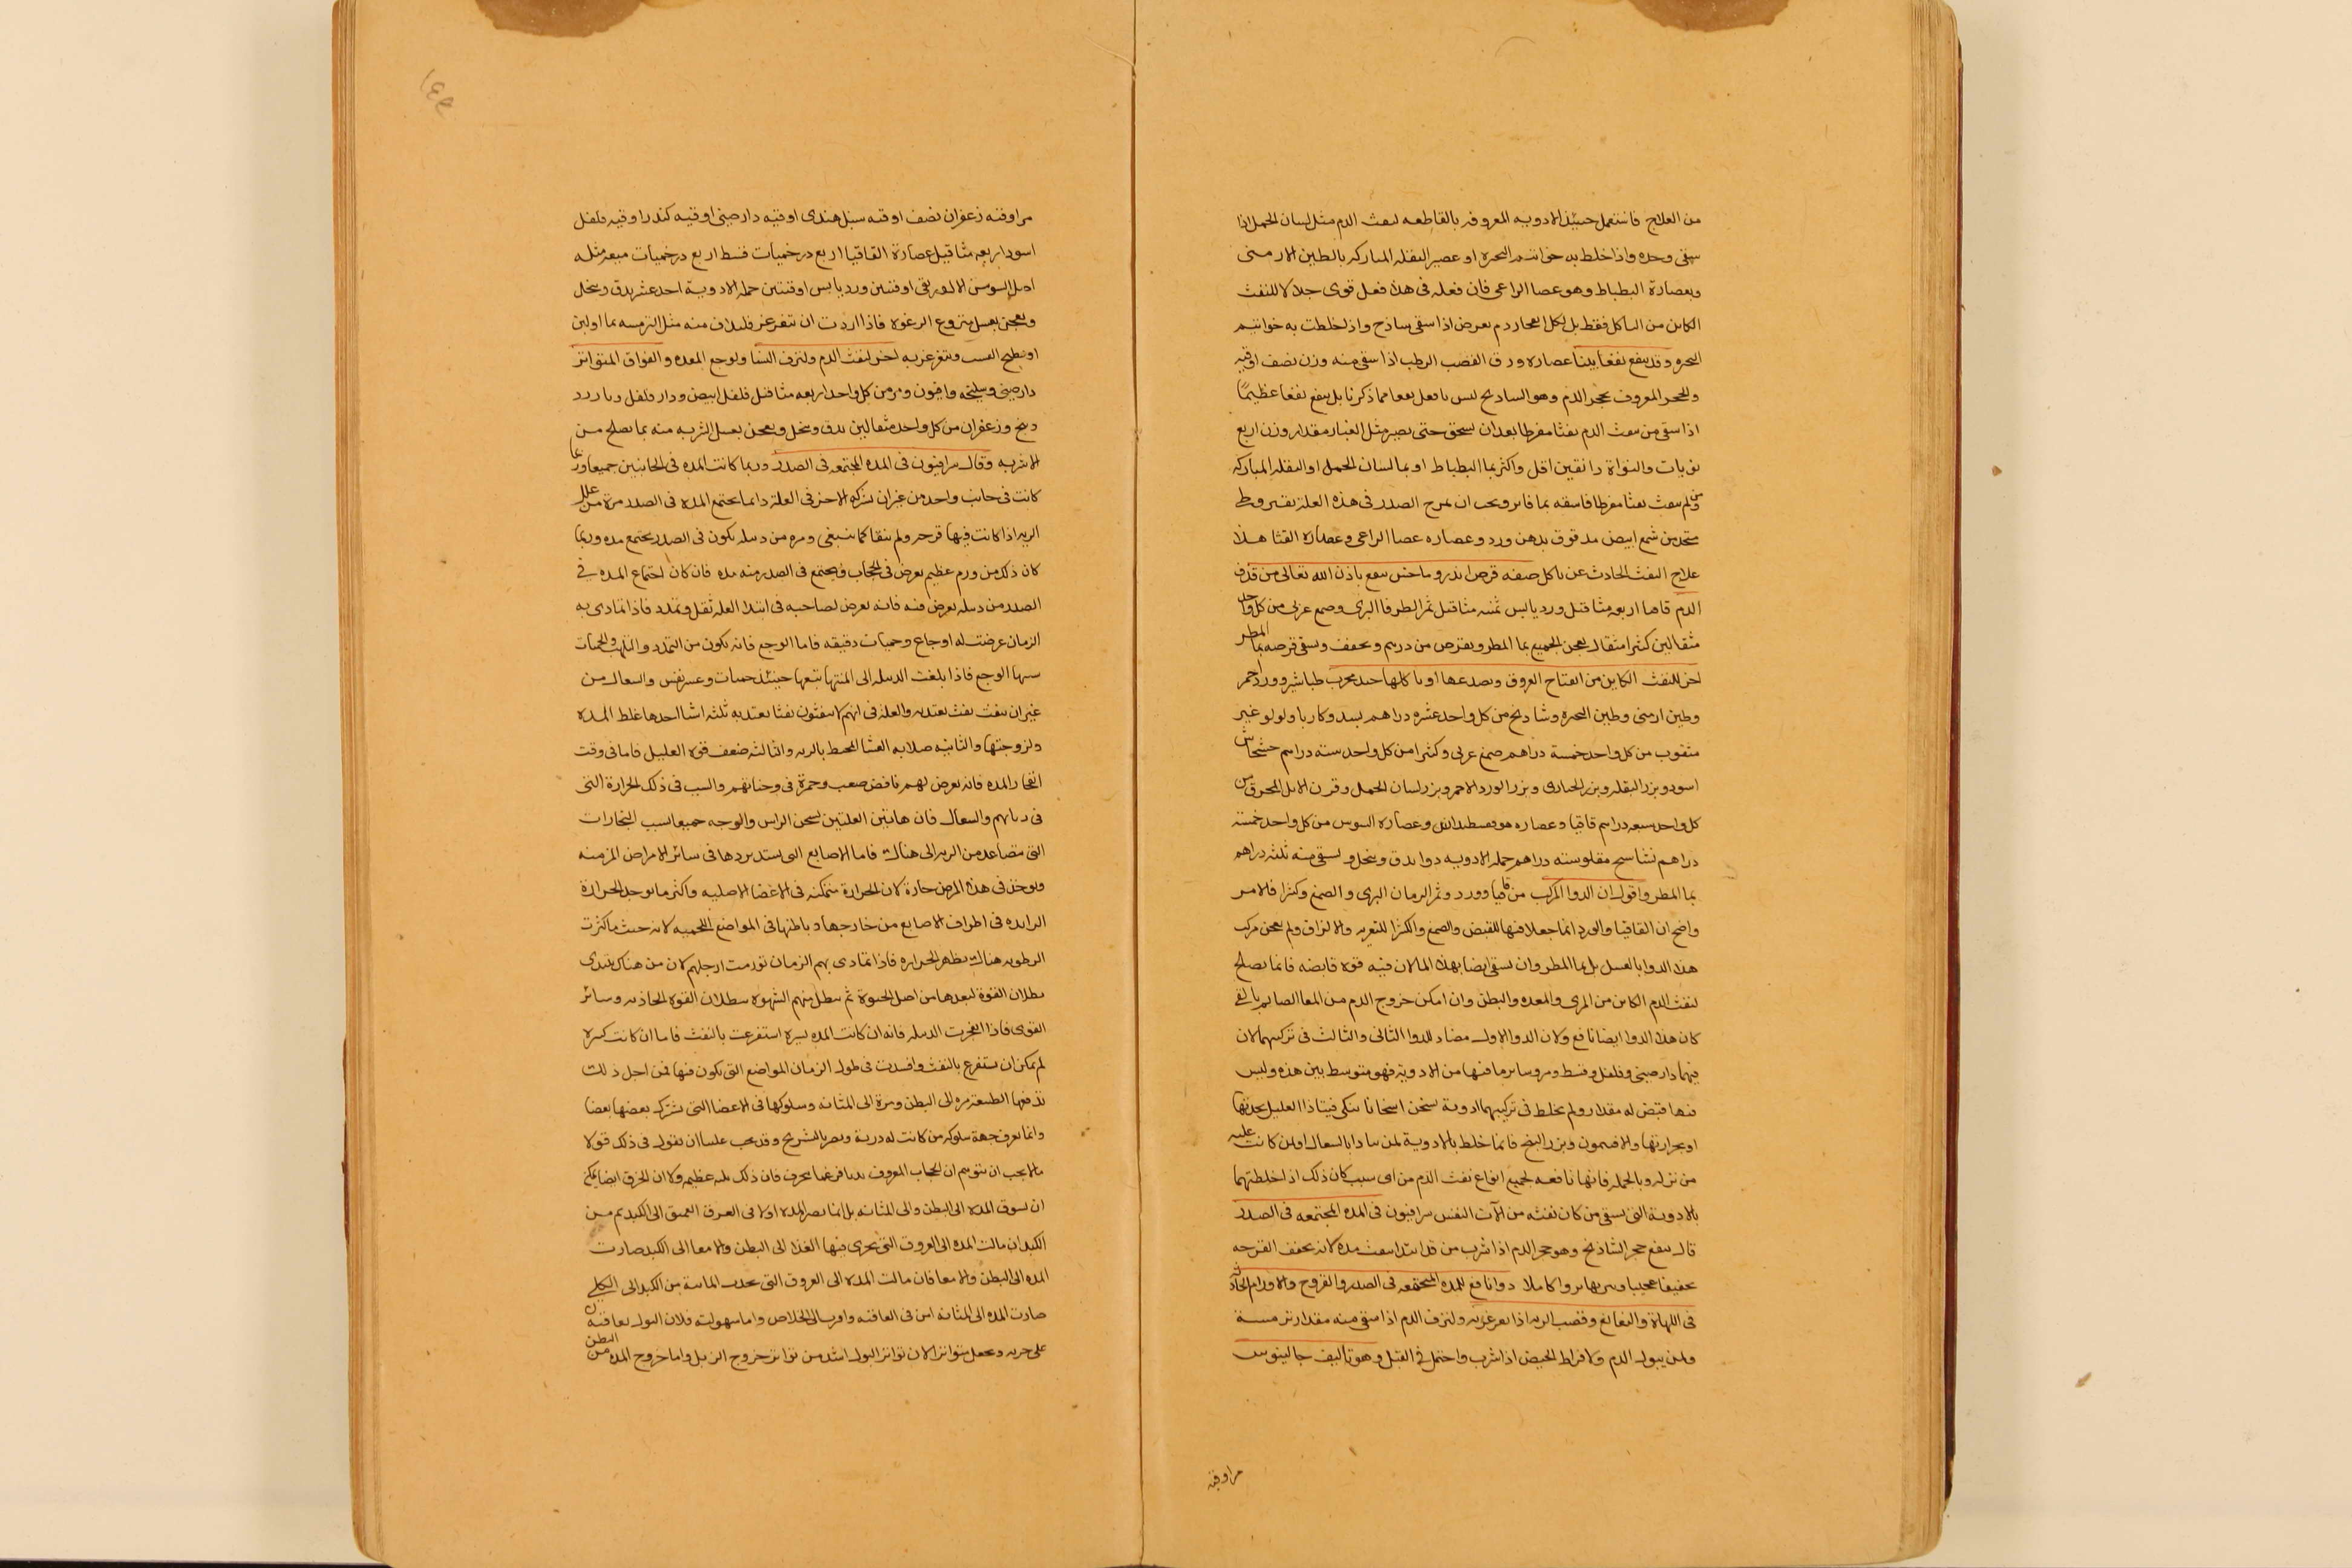 من العلاج فاستعمل حينئذ الادويه المعروفه بالقاطعه لنفث الدم مثل لسان الحمل اذا
سقى وحده واذا خلط به خواتيم البحره او عصير البقله المباركه بالطين الارمنى
وبعصارة البطباط وهو عصا الراعى فان فعله فى هذا فعل قوى جدا لا للنفث
الكاين من التاكل فقط بل لكل انفجار دم يعرض اذا سقى ساذج واذ اخلطت به خواتيم
البحره وقد ينفع نفعا بينا عصاره ورق القصب الرطب اذا سقى منه وزن نصف اوقيه
والحجر المعروف بحجر الدم وهو السادنج ليس بافعل نفعا مما ذكرنا بل ينفع نفعا عظيمًا
اذا سقى من ينفث الدم نفثا مفرطا بعد ان يسحق حتى يصير مثل الغبار مقدار وزن اربع
نويات والنواة دانقين اقل واكثر بما البطباط او بما لسان الحمل او البقله المباركه
من لم ينفث نفثا مفرطا فاسقه بما فاتر ويجب ان يمرج الصدر فى هذه العلة بقيروطى
متخذ من شمع ابيض مدقوق بدهن ورد وعصاره عصا الراعى وعصاره القثا هذا
علاج النفث الحادث عن تاكل صفه قرص اندروماخس ينفع باذن الله تعالى من قذف
الدم قاقيا اربعه مثاقيل ورد يابس ثمنيه مثاقيل ثمر الطرفا البرى وصمغ عربى من كل واحد
مثقالين كثيرا مثقال يعجن الجميع بما المطر ويقرص من درهم ويجفف ويسقى قرصه بما المطر
اخر للنفث الكاين من انفتاح العروق وتصدعها او تاكلها جيد مجرب طباشير وورد احمر
وطين ارمنى وطين البحره وشادنج من كل واحد عشره دراهم بسد وكاربا ولولو غير
مثقوب من كل واحد خمسة دراهم صمغ عربى وكثيرا من كل واحد سته دراهم خشخاش
اسود وبزر البقله وبزر الخبازى وبزر الورد الاحمر وبزر لسان الحمل وقرن الايل المحرق من
كل واحد سبعه دراهم قاقيا وعصاره هوفسطيداس وعصاره السوس من كل واحد خمسه
دراهم نشاستج مقلو سته دراهم جمله الادويه دوا يدق وينخل ويسقى منه ثلثه دراهم
بما المطر واقول ان الدوا المركب من قاقيا وورد وثمر الرمان البرى والصمغ وكثيرا فالامر
واضح ان القاقيا والورد انما جعلا فيها للقبض والصمغ والكثيرا للتغريه والالزاق ولم يعجن مركب
هذا الدوا بالعسل بل بما المطر وان يسقى ايضا بهذا الما لان فيه قوه قابضه فانما يصلح
لنفث الدم الكاين من المرى والمعده والبطن وان امكن خروج الدم من المعا الصايم بالقى
كان هذا الدوا ايضا نافع ولان الدوا الاول مضاد للدوا الثانى والثالث فى تركيبهما لان
فيهما دارصينى وفلفل وقسط ومر وساير ما فيها من الادوية فهو متوسط بين هذه وليس
فيها قبض له مقدار ولم يخلط فى تركيبهما ادوية تسخن اسخانا ينكى فيتاذا العليل بحدتها
او بحرارتها والافيون وبزر البنج فانما خلط بالادوية لمن يتاذا بالسعال او لمن كانت علته
من نزله وبالجمله فانها نافعه لجميع انواع نفث الدم من اى سبب كان ذلك اذا خلطتهما
بالادوية التى يسقى من كان نفثه من الآت النفس سرافيون فى المده المجتمعه فى الصدر
قال ينفع حجر الشاذنج وهو حجر الدم اذا شرب من قد ابتدا بنفث مده لانه يجفف القرحه
تجفيفا عجيبا ويبريها بروا كاملا دوا نافع للمده المجتمعه فى الصدر والقروح والاورام الحادثه
فى اللهاة والنغانغ وقصب الريه اذا تغرغر به ولنزف الدم اذا سقى منه مقدار ترمسة
ولمن يبول الدم ولافراط الحيض اذا شرب واحتمل فى القبل وهو تاليف جالينوس
مر اوقيه
مر اوقيه زعفران نصف اوقيه سنبل هندى اوقيه دارصينى اوقيه كندر اوقيه فلفل
اسود اربعه مثاقيل عصارة القاقيا اربع درخميات قسط اربع درخميات ميعه مثله
اصل السوس الالوريقى اوقيتين ورد يابس اوقيتين جمله الادوية احد عشر يدق وينخل
ويعجن بعسل منزوع الرغوه فاذا اردت ان تغرغر فليداف منه مثل الترمسه بما او لبن
او بطبيخ العنب ويتغرغر به اخر لنفث الدم ولنزف النسا ولوجع المعده والفواق المتواتر
دارصينى وسليخه وافيون ومر من كل واحد اربعه مثاقيل فلفل ابيض ودار فلفل وبارزد
وبنج وزعفران من كل واحد مثقالين يدق وينخل ويعجن بعسل الشربه منه بما يصلح من
الاشربه وقال سرافيون فى المده المجتمعه فى الصدر وربما كانت المده فى الجانبين جميعا وربما
كانت فى جانب واحد من غير ان يشركه الاخر فى العلة دايما يجتمع المده فى الصدر مرة من علل
الريه اذا كانت فيها قرحه ولم تنقا كما ينبغى ومره من دبيله تكون فى الصدر يجتمع مده وربما
كان ذلك من ورم عظيم يعرض فى الحجاب فيجتمع فى الصدر منه مده فان كان اجتماع المده فى
الصدر من دبيله يعرض فيه فانه يعرض لصاحبه فى ابتدا العله ثقل وتمدد فاذا تمادى به
الزمان عرضت له اوجاع وحميات دقيقه فاما الوجع فانه يكون من التمدد والتلهب والحميات
سببها الوجع فاذا بلغت الدبيله الى المنتها تتبعها حينئذ حميات وعسر نفس والسعال من
غير ان ينفث نفث يعتد به والعلة فى انهم لا ينفثون نفثا يعتد به ثلثه اشيا احدها غلظ المده
ولزوجتها والثانيه صلابه الغشا المحيط بالريه والثالثه ضعف قوه العليل فاما فى وقت
انفجار المده فانه يعرض لهم نافض صعب وحمرة فى وجناتهم والسبب فى ذلك الحرارة التى
فى رياتهم والسعال فان هاتين العلتين تسخن الراس والوجه جميعا لسبب البخارات
التى تتصاعد من الريه الى هناك فاما الاصابع التى يشتد بردها فى سائر الامراض المزمنه
ويوجد فى هذا المرض حارة لان الحرارة متمكنه فى الاعضا الاصليه واكثر ما يوجد الحرارة
الزايده فى اطراف الاصابع من خارجها وباطنها فى المواضع اللحميه لانه حيث ما كثرت
الرطوبه هناك يظهر الحراره فاذا تمادى بهم الزمان تورمت ارجلهم لان من هناك يبتدى
بطلان القوة لبعدها من اصل الحيوة ثم يبطل منهم الشهوة ببطلان القوه الجاذبه وسائر
القوى فاذا انفجرت الدبيله فانه ان كانت المده يسيره استفرغت بالنفث فاما ان كانت كثيره
لم يمكن ان يستفرغ بالنفث وافسدت فى طول الزمان المواضع التى يكون فيها فمن اجل ذلك
تدفعها الطبيعة مره الى البطن ومرة الى المثانه وسلوكها فى الاعضا التى يشترك بعضها بعضا
وانما يعرف جهة سلوكه من كانت له دربة وبصر بالتشريح وقد يجب علينا ان نقول فى ذلك قولا
مالا يجب ان يتوهم ان الحجاب المعروف بديافرغما يحرق فان ذلك بليه عظيمه ولا ان الخرق ايضا يمكن
ان يسوق المده الى البطن والى المثانه بل انما يصير المده اولا فى العرق العميق الى الكبد ثم من
الكبد ان مالت المده الى العروق التى يجرى فيها الغذا الى البطن والامعا الى الكبد صارت
المده الى البطن والامعا فان مالت المده الى العروق التى يجذب المائية من الكبد الى الكلى
صارت المده الى المثانه اس فى العاقبه واقرب الى الخلاص واما سهولته فلان البول يعاقبه
على جريه ويجعل متواترا لان تواتر البول اشد من تواتر خروج الزبل واما خروج المده من البطن